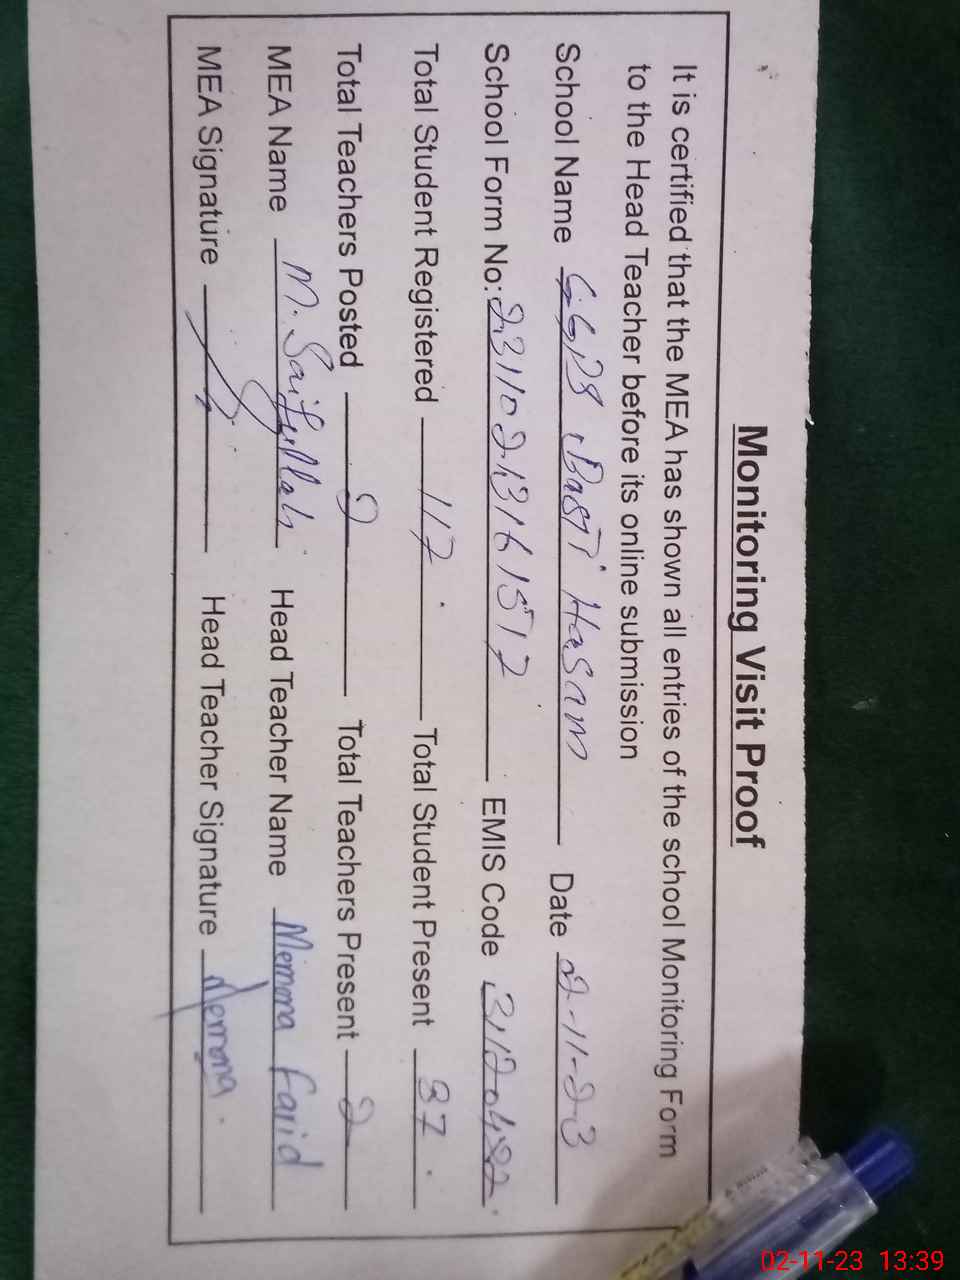 Monitoring Visit Proof
It is certified that the MEA has shown all entries of the school Monitoring Form
to the Head Teacher before its online submission
School Name GGPS Basti Hasam Date 2-11-23
School Form No: EMIS Code
Total Student Registered 117 Total Student Present 87
Total Teachers Posted 2 Total Teachers Present 2
MEA Name M. Saifullah Head Teacher Name Memona Farid
MEA Signature Head Teacher Signature Memona
02-11-23 13:39